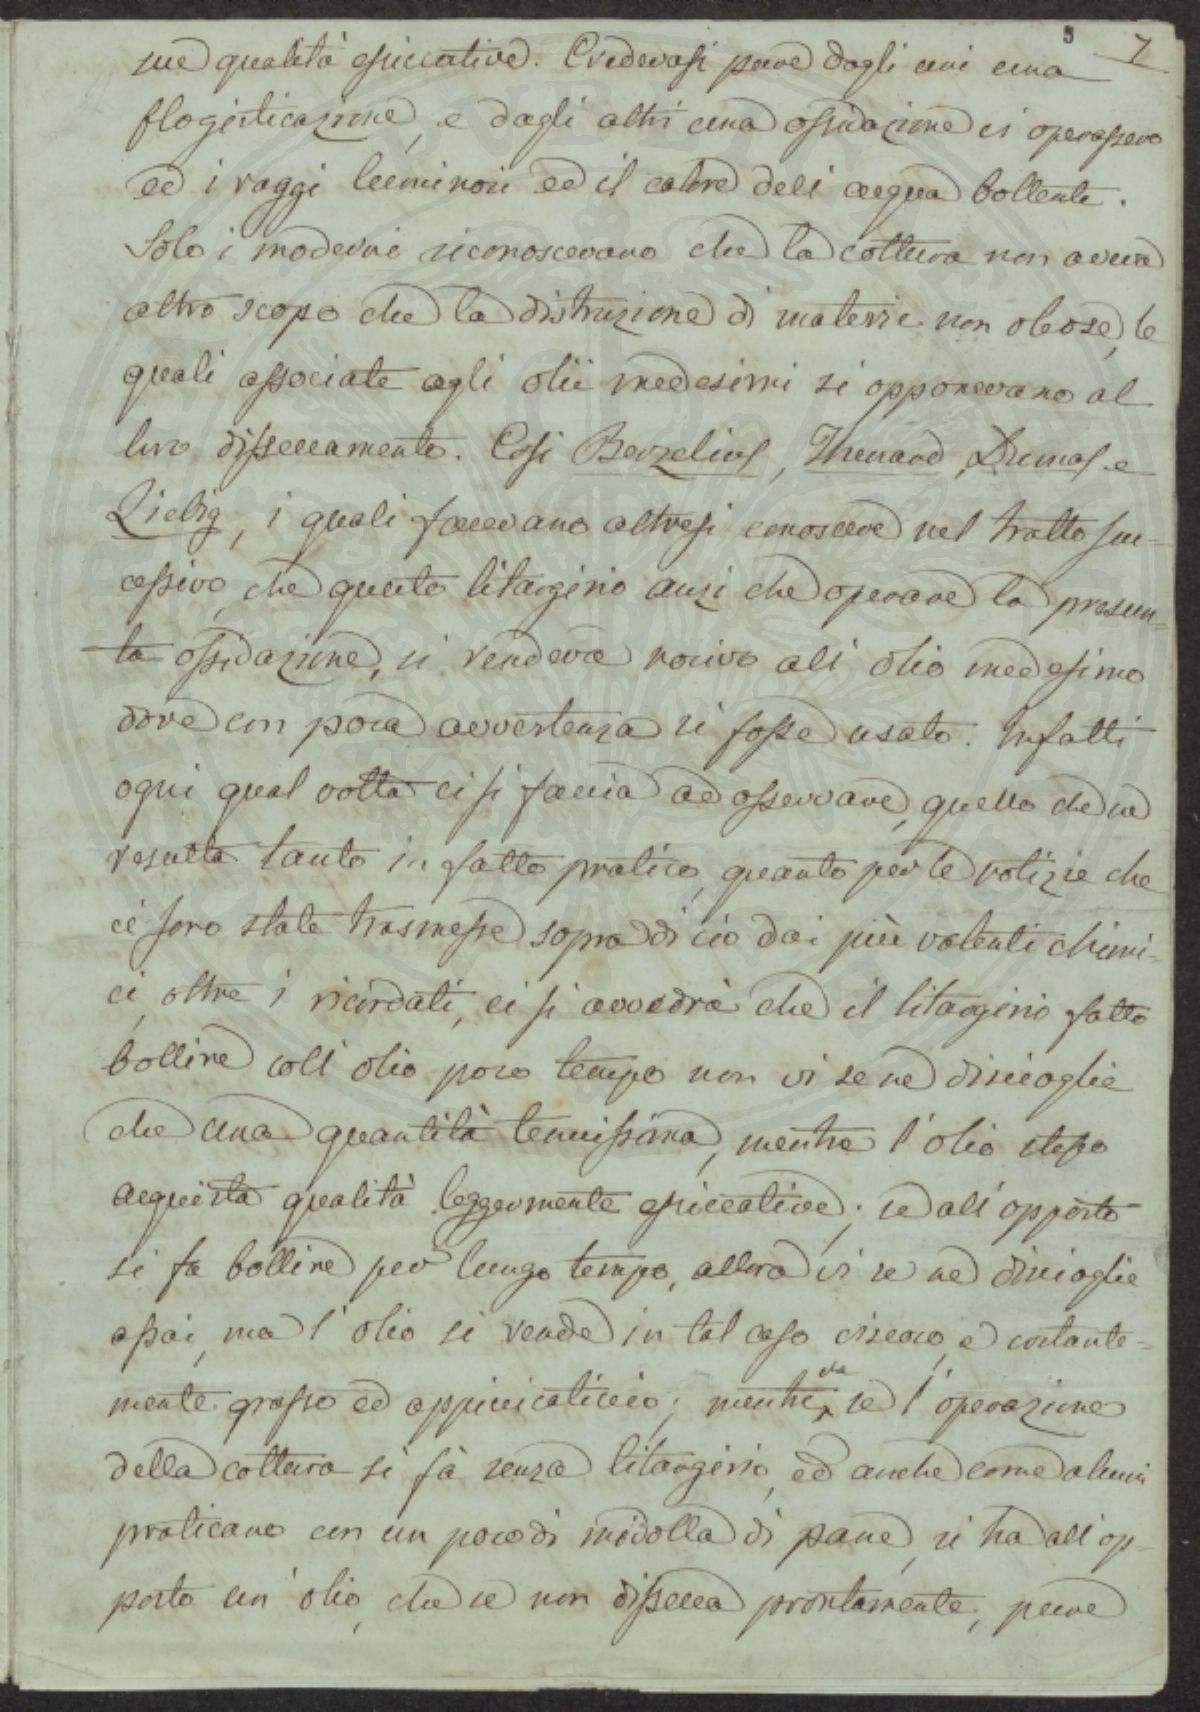 5 7
sue qualità essiccative. Credevasi pure dagli uni una
flogisticazione, e dagli altri una ossidazione vi operassero
ed i raggi luminosi ed il calore dell'acqua bollente.
Solo i moderni riconoscevano che la cottura non aveva
altro scopo che la distruzione di materie non oleose, le
quali associate agli olii medesimi si opponevano al
loro disseccamento. Così Berzelius, Thenard, Dumas e
Liebig, i quali facevano altresì conoscere nel tratto suc=
cessivo, che questo litargirio anzi che operare la presun=
ta ossidazione, si rendeva nocivo all'olio medesimo
dove con poca avvertenza si fosse usato. Infatti
ogni qual volta ci si faccia ad osservare, quello che ne
resulta tanto in fatto pratico, quanto per le notizie che
ci sono state trasmesse sopra di ciò dai più valenti chimi=
ci, oltre i ricordati, ci si avvedrà che il litargirio fatto
bollire coll'olio poco tempo non vi se ne discioglie
che una quantità tenuissima, mentre l'olio stesso
acquista qualità leggermente essiccative; se all'opposto
si fa bollire per lungo tempo, allora vi se ne discioglie
assai, ma l'olio si rende in tal caso viscoso, e costante=
mente grasso ed appiccicaticcio; mentre che se l'operazione
della cottura si fà senza litargirio, ed anche come alcuni
praticano con un poco di midolla di pane, si ha all'op=
posto un'olio, che se non dissecca prontamente, pure